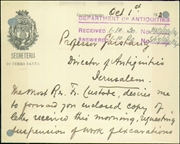 Oct 1st
DEPARTMENT OF ANTIQUITIES
SEGRETERIA
DI TERRA SANTA
RECEIVED 1.10.20
ANSWERED
Professor Garstang
Director of Antiquities
Jerusalem.
The Most Rev. Fr. Custode, desires me
to forward you enclosed copy of
letter received this morning, requesting
suspension of work of excavations